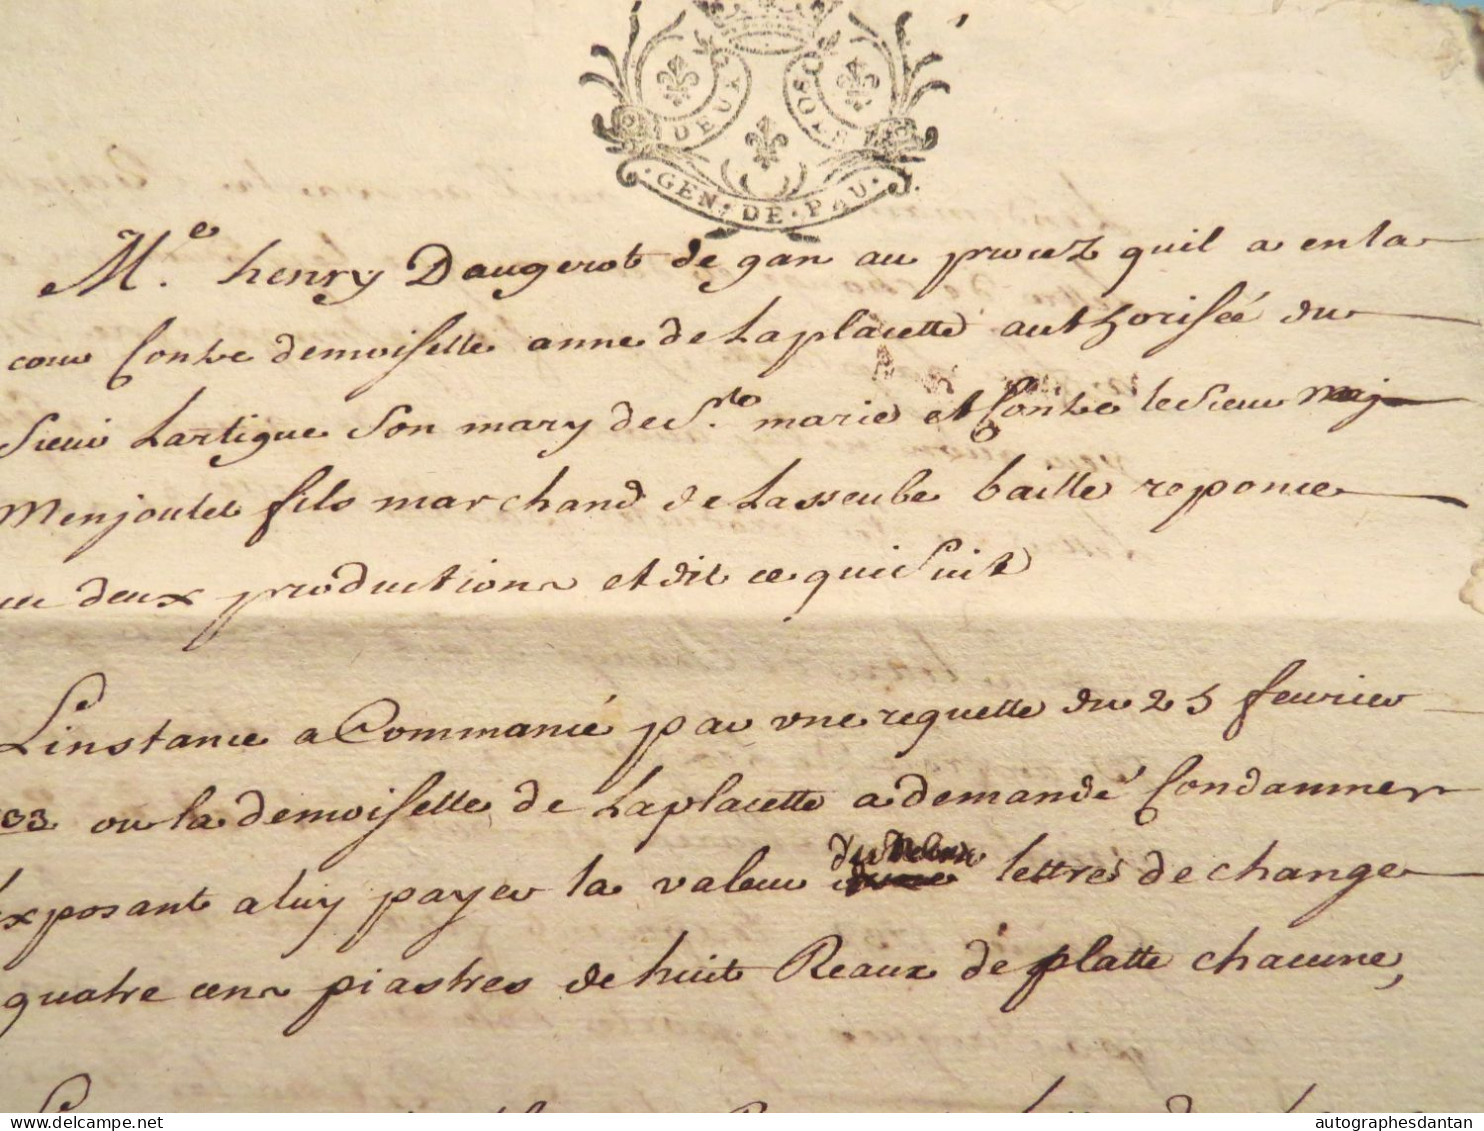 DEUX SOLS
GEN · DE · PAU ·
M.e henry Daugerot de gan au procez quil a en la
cour Contre demoiselle anne de Laplacette authorisée du
sieur Lartigue son mary de S.te marie et Contre le sieur
Menjoulet fils marchand de Lasseube baille reponce
deux productions et dit ce qui suit
Linstance a Commancé par vne requette du 25 feurier
33 ou la demoiselle de Laplacette a demandé Condamner
exposant a luy payer la valeur de deux lettres de change
quatre cens piastres de huit Reaux de platte chacune,
autographesdantan